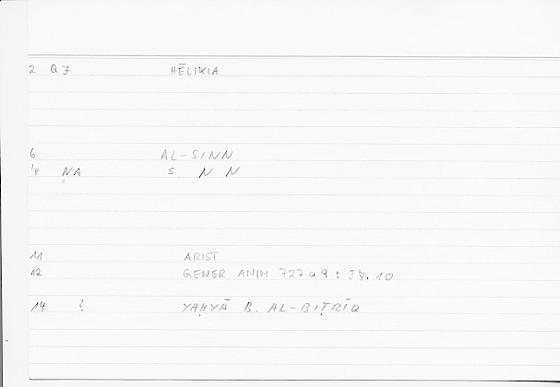 2 Q7 HĒLIKIA
6 AL-SINN
NA S N N
11 ARIST
12 GENER ANIM 727a9 : 10
14 YAḤYĀ B. AL-BIṬRĪQ